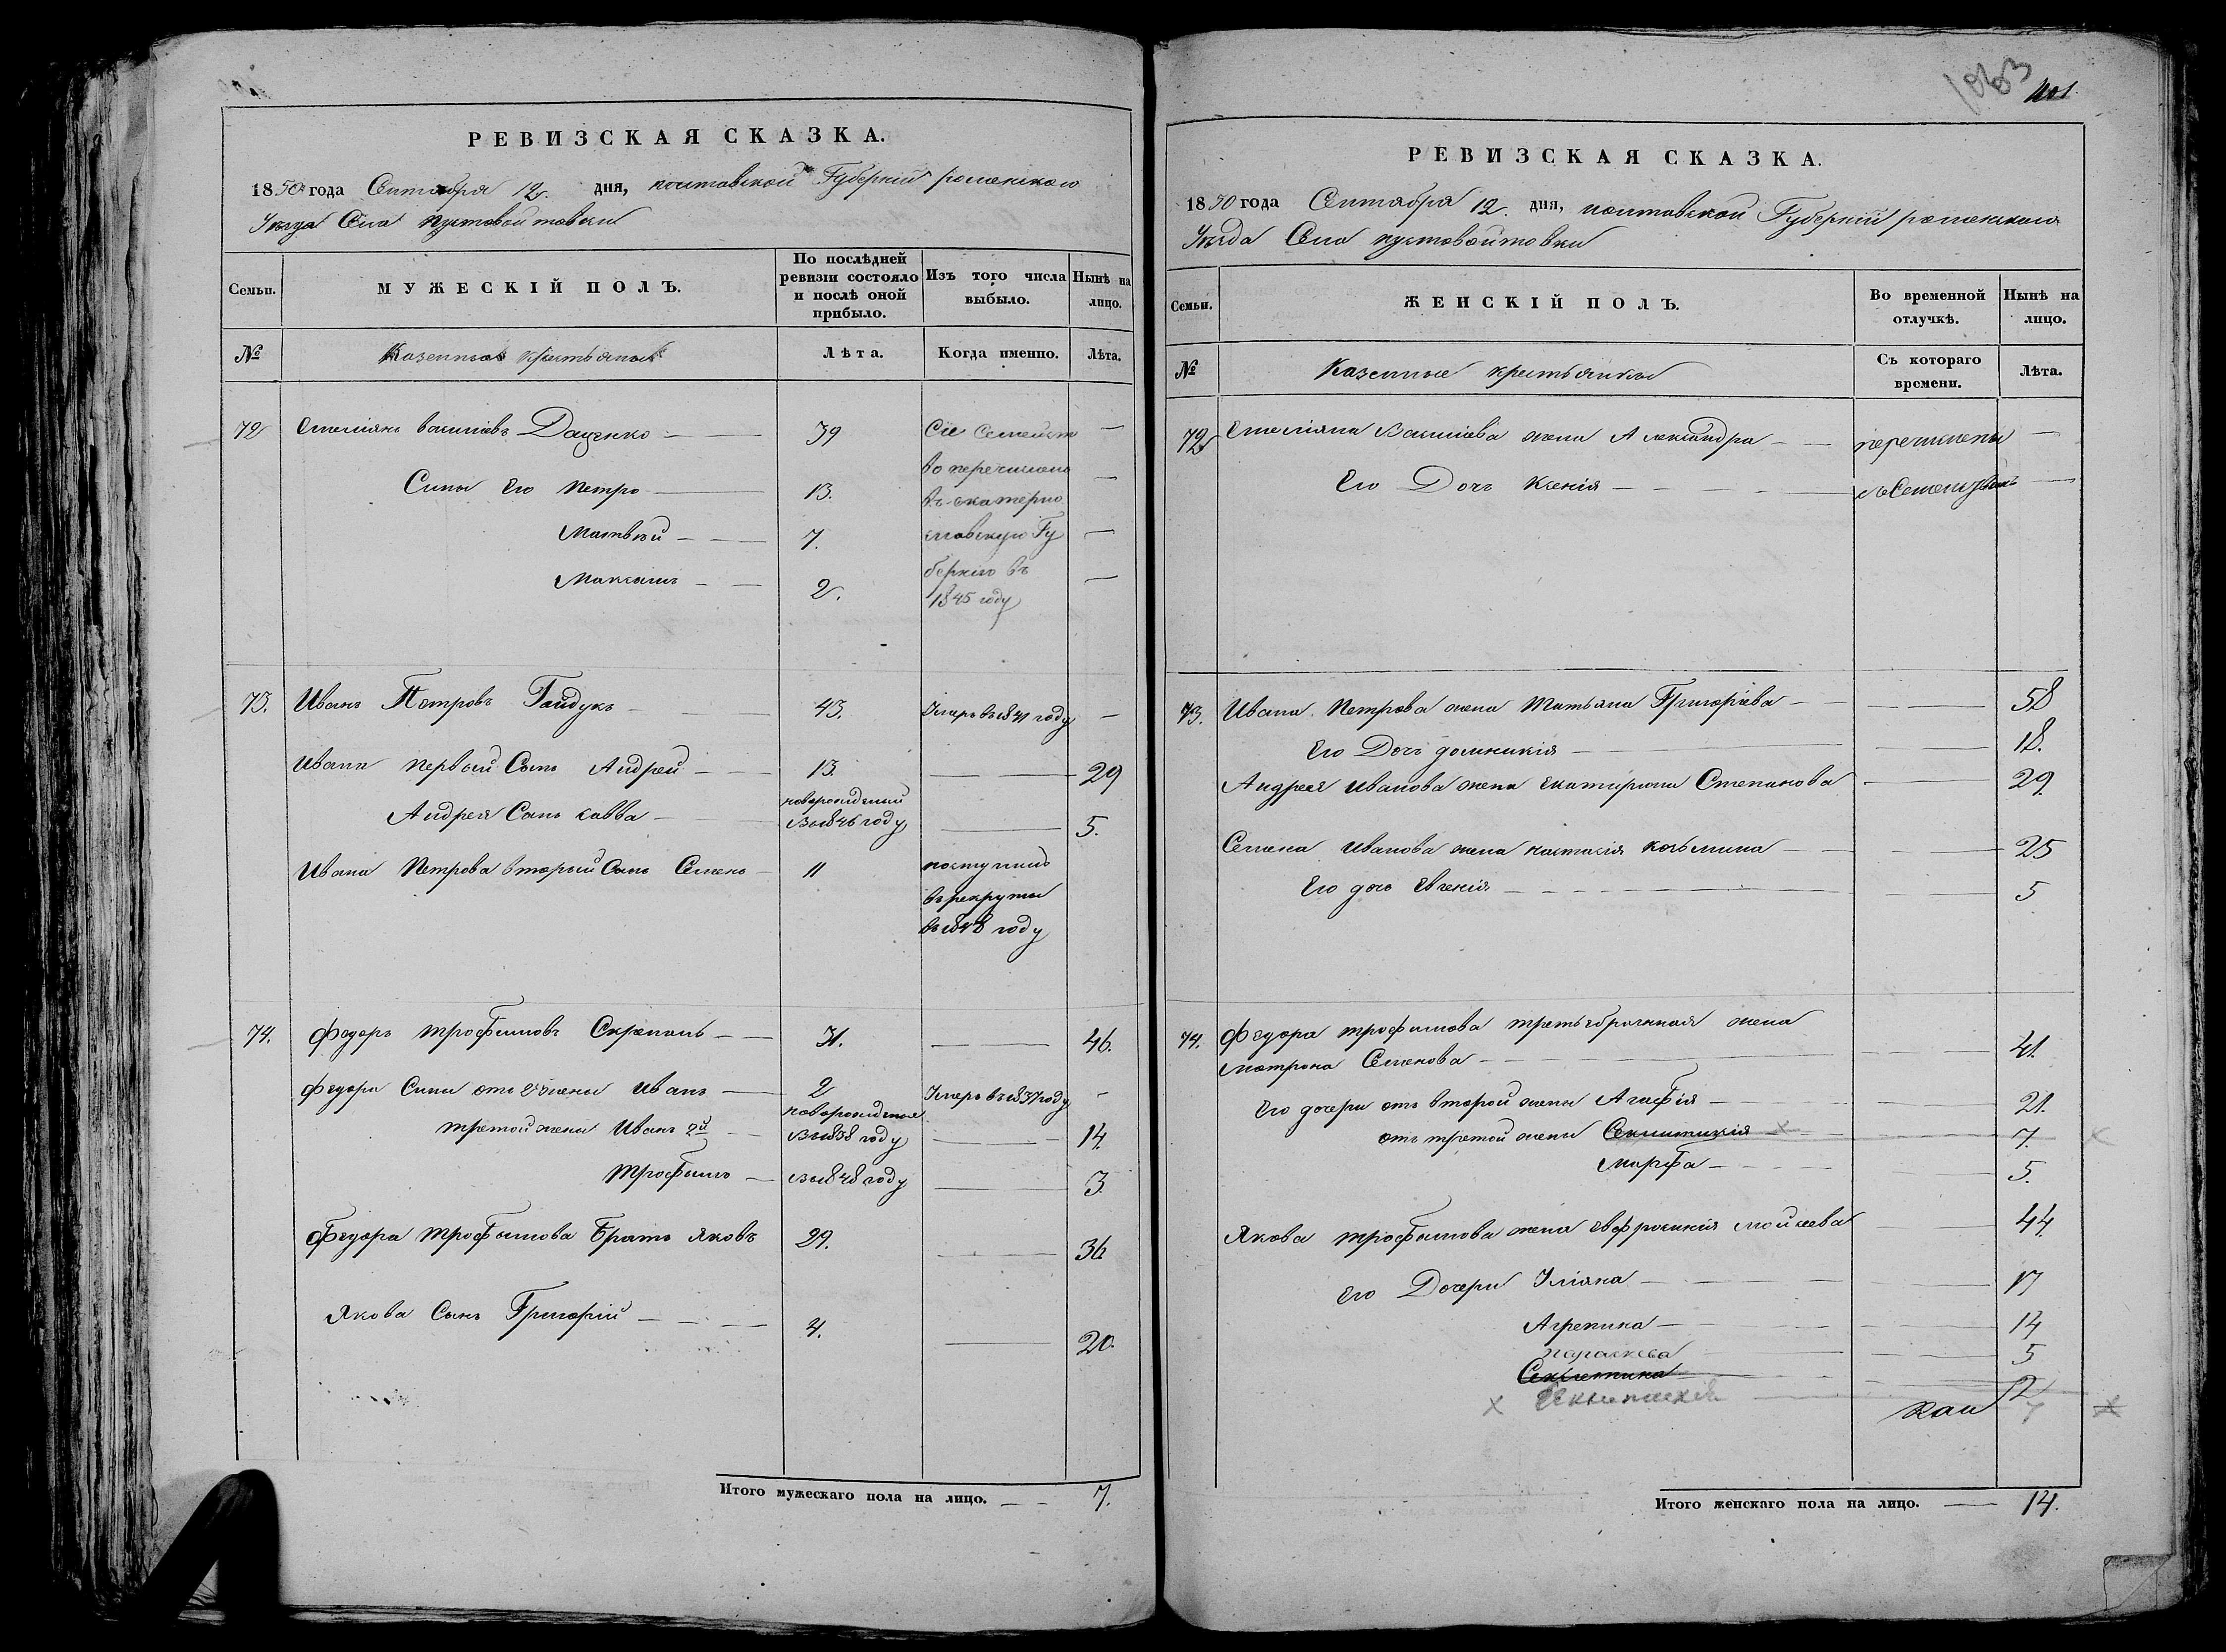 РЕВИЗСКАЯ СКАЗКА.
1850 года Сентября 12 дня, Полтавской Губернии роменского
Уезда Села Пустовойтовки
Семьи.
МУЖЕСКІЙ ПОЛЪ.
По послѣдней ревизіи состояло и послѣ оной прибыло.
Изъ того числа выбыло.
Нынѣ на лицо.
№
Казенные крестьяне
Лѣта.
Когда именно.
Лѣта.
72 Емелиянъ Василіевъ Даценко 39 Сіе Семейст —
Сины Его Петро 13. во перечислено —
въ екатерино
Матвѣй 7. славскую Гу —
Максимъ 2. бернію въ —
1845 году
73. Иванъ Петровъ Гайдукъ 43. Умеръ въ 1841 году —
Ивана первый Сынъ Андрей 13. — 29
Андрея Сынъ Савва новорожденый
въ 1846 году — 5.
Ивана Петрова вторый Сынъ Семенъ 11 поступилъ
в рекруты
въ 1848 году
74. Федоръ Трофимовъ Скрепаль 31. — 46.
Федора Сины отъ 2й жены Иванъ 2 Умеръ въ 1837 году —
новорожденые
третой жены Иванъ 2й въ 1838 году — 14.
Трофимъ въ 1848 году — 3.
Федора Трофимова Братъ Яковъ 29. — 36
Якова Сынъ Григорій 4. — 20.
Итого мужескаго пола на лицо. — 7.
1063
401.
РЕВИЗСКАЯ СКАЗКА.
1850 года Сентября 12. дня, полтавской Губерніи роменского
Уезда Села пустовойтовки
Семьи.
ЖЕНСКІЙ ПОЛЪ.
Во временной отлучкѣ.
Нынѣ на лицо.
№
Казенные крестьянки
Съ котораго времени.
Лѣта.
72 Емелияна Василіева жена Александра — перечислены —
Его Дочь Ксенія — —
73. Ивана Петрова жена Татьяна Григоріева — 58
Его Дочь домникія — 18.
Андрея Иванова жена екатирина Степанова — 29.
Семена Иванова жена настасія козьмина — 25
Его дочь Евгенія — 5
74. Федора трофимова третьебрачная жена
Мотрона Семенова — 41.
Его дочери отъ второй жены Агафія — 21.
отъ третой жены Секлитикія — × 7. ×
Марфа — 5.
Якова трофимова жена Евфросинія Мойсеева — 44.
Его Дочери Уліяна — 17
Агрепина — 14
параскева — 5
2
× 7 ×
Итого женскаго пола на лицо. — 14.